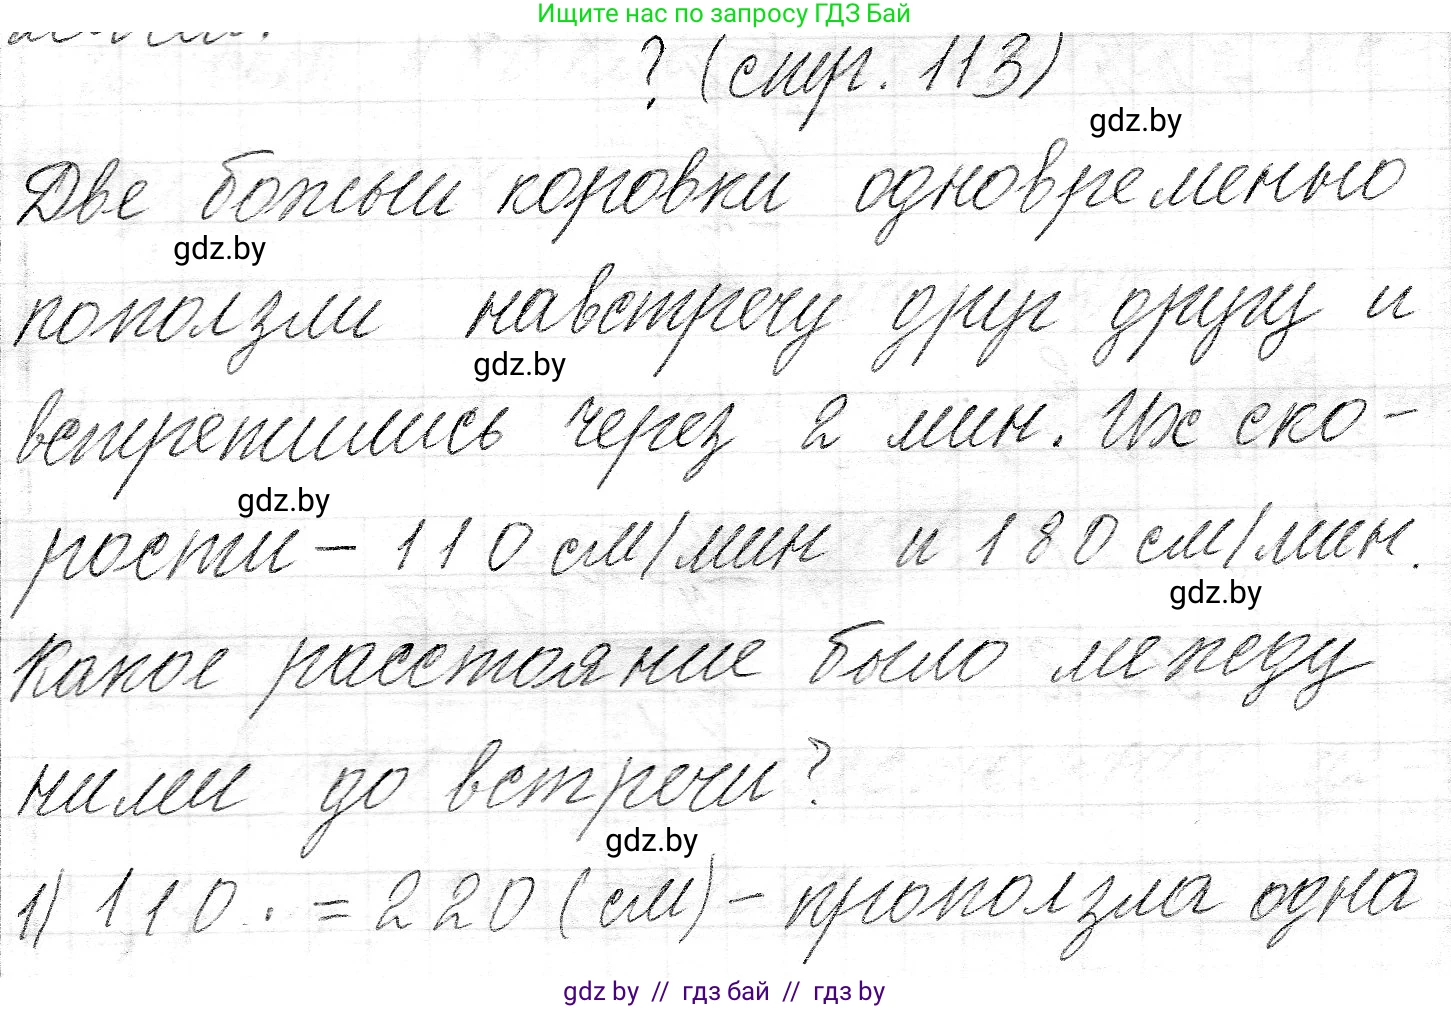 Ищите нас по запросу ГДЗ Бай
? (стр. 113)
gdz.by
Две божьи коровки одновременно
gdz.by
поползли навстречу друг другу и
gdz.by
встретились через 2 мин. Их ско-
gdz.by
рости – 110 см/мин и 180 см/мин.
gdz.by
Какое расстояние было между
ними до встречи?
gdz.by
1) 110 · = 220 (см) – проползла одна
gdz by // гдз бай // гдз by